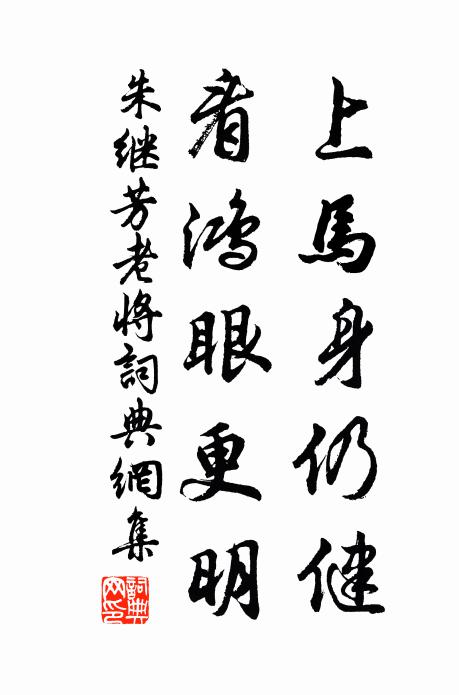 上馬身仍健
看鴻眼更明
朱继芳老將詞典網集
詞典網印